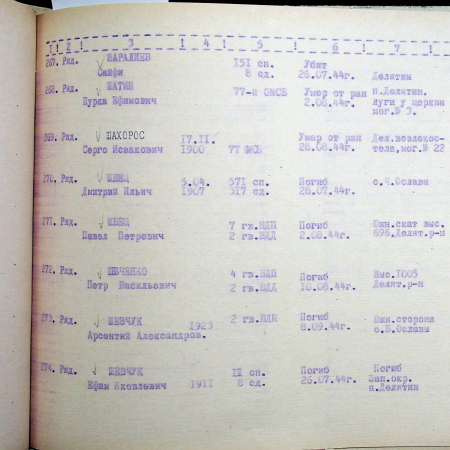 1 ! 2 ! 3 ! 4 ! 5 ! 6 ! 7 !
267. Ряд. ШАРАЛИЕВ 151 сп. Убит
Сайфи 8 сд. 26.07.44г. Делятин
268. Ряд. ШАТИН 77-й ОМСБ Умер от ран п.Делятин,
Шурка Ефимович 2.08.44г. луги у церкви
мог.№ 3.
269. Ряд. ШАХОРОС 17.11. Умер от ран
Серго Исаакович 1900 77 ОМСБ 28.08.44г. тела,мог.№ 22
270. Ряд. ШВЕЦ 5.04. 571 сп. Погиб с.Ч.Ославы
Дмитрий Ильич 1907 317 сд. 28.07.44г.
271. Ряд. ШВЕЦ 7 гв.ВДП Погиб Южн.скат выс.
Павел Петрович 2 гв.ВДД 2.08.44г. 696,Делят.р-н
272. Ряд. ШЕВЧЕНКО 4 гв.ВДП Погиб Выс.1005
Петр Васильевич 2 гв.ВДД 10.08.44г. Делят.р-н
273. Ряд. ШЕВЧУК 1923 2 гв.ВДП Погиб Южн.сторона
Арсентий Александров. 8.09.44г. с.В.Ославы
274. Ряд. ШЕВЧУК 11 сп. Погиб Погиб
Ефим Яковлевич 1911 8 сд. 26.07.44г. Зап.окр.
п.Делятин